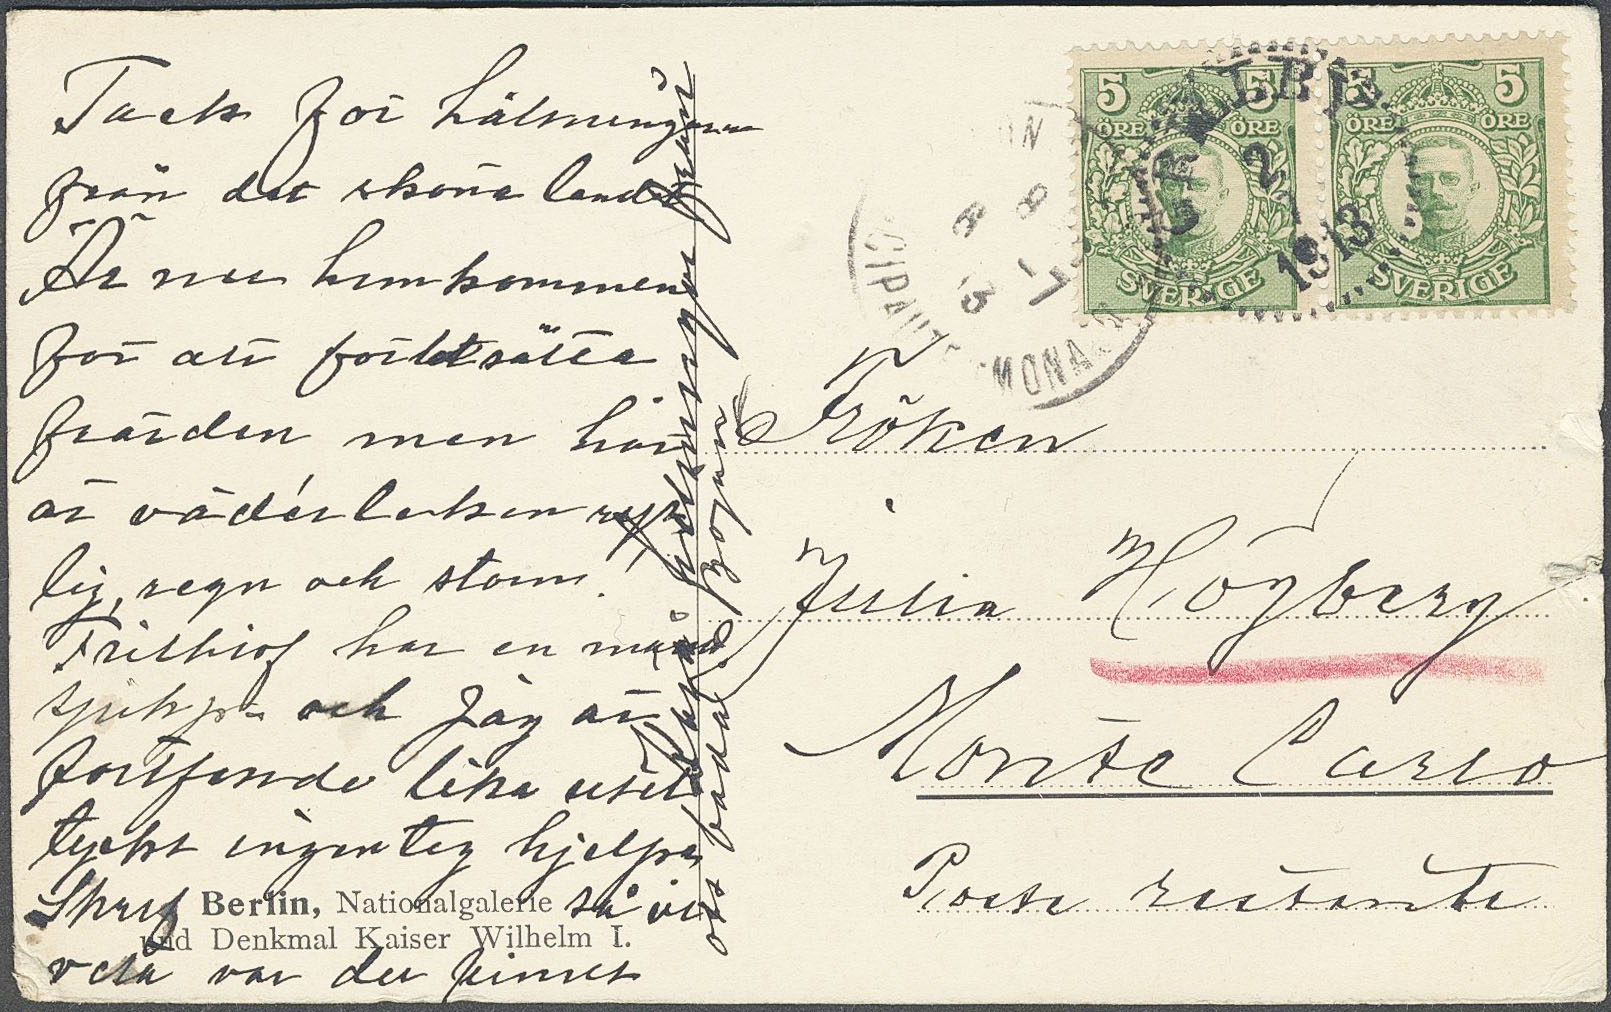 Tack för hälsningarna
från det sköna landet
Är nu hemkommen
för att fortsätta
färden men här
är väderleken ryslig,
regn och storm!
Frithiof har en
och jag är
fortfarande lika usel
tyckt ingenting hjelpa
Skrif så vi
veta var du finnes
hjertliga hälsningar från
oss båda!
Berlin, Nationalgalerie
und Denkmal Kaiser Wilhelm I.
5 ÖRE 5 ÖRE SVERIGE
5 ÖRE 5 ÖRE SVERIGE
2 7 1913
8 7 13
Fröken
Julia Högberg
Monte Carlo
Poste restante